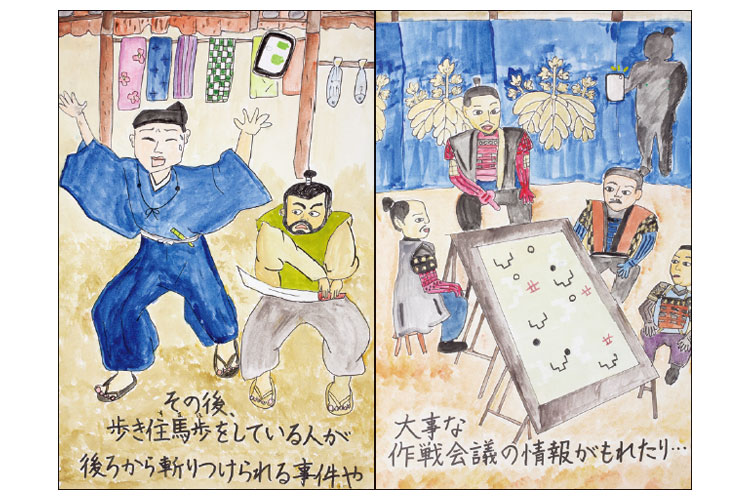 その後、
すまほ
歩き住馬歩をしている人が
後ろから斬りつけられる事件や
大事な
作戦会議の情報がもれたり…